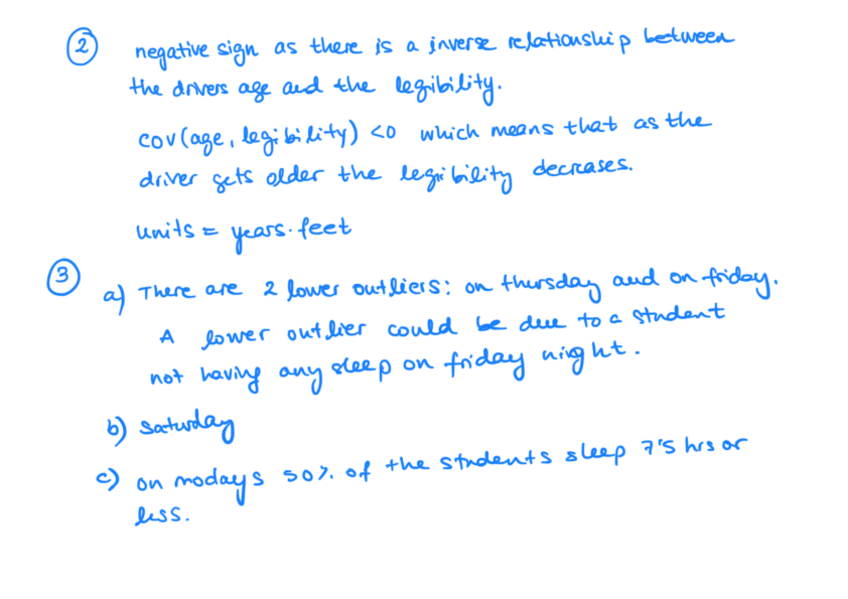 2 negative sign as there is a inverse relationship between
the drivers age and the legibility.
cov(age, legibility) <0 which means that as the
driver gets older the legibility decreases.
units = years·feet
3 a) There are 2 lower outliers: on thursday and on friday.
A lower outlier could be due to a student
not having any sleep on friday night.
b) saturday
c) on modays 50% of the students sleep 7'5 hrs or
less.